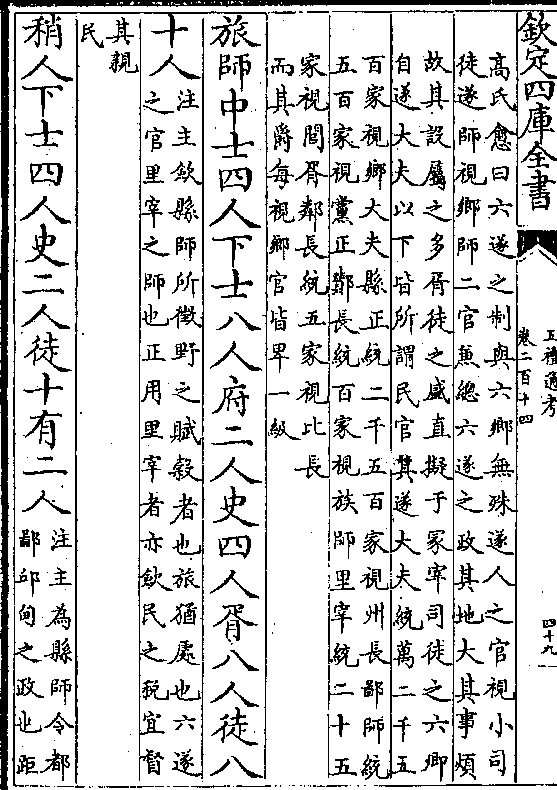 欽定四庫全書
五禮通考
卷二百十四
四十九
高氏愈曰六遂之制與六鄉無殊遂人之官視小司
徒遂師視鄉師二官兼總六遂之政其地大其事煩
故其設屬之多胥徒之盛直擬于冢宰司徒之六卿
自遂大夫以下皆所謂民官其遂大夫統萬二千五
百家視鄉大夫縣正統二千五百家視州長鄙師統
五百家視黨正酇長統百家視族師里宰統二十五
家視閭胥鄰長統五家視比長
而其爵每視鄉官皆卑一級
旅師中士四人下士八人府二人史四人胥八人徒八
十人
注主斂縣師所徵野之賦穀者也旅猶處也六遂
之官里宰之師也正用里宰者亦斂民之稅宜督
其親
民
稍人下士四人史二人徒十有二人
注主為縣師令都
鄙邱甸之政也距